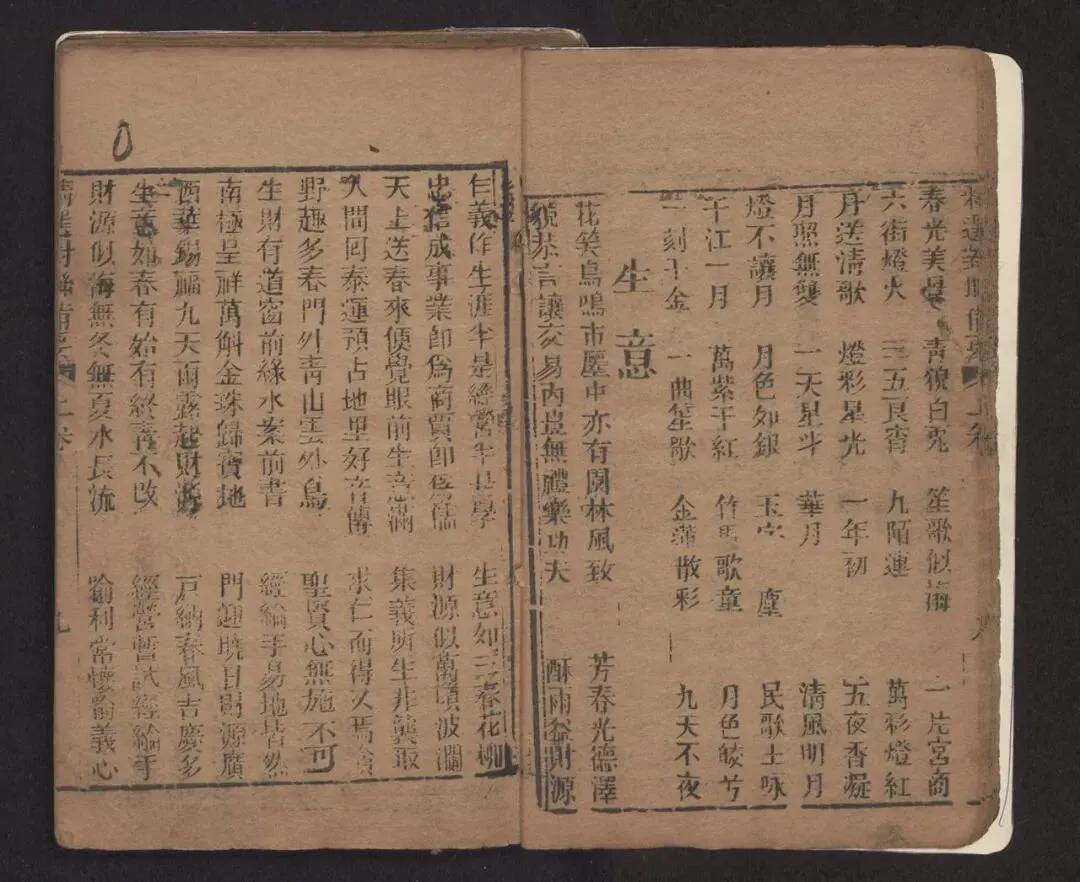 春光美景 青貌白兎 笙歌似海 一片宮商
六街燈火 三五良宵 九陌連 萬彩燈紅
月送淸歌 燈彩星光 一年初 五夜香凝
月照無雙 一天星斗 華月 淸風明月
燈不讓月 月色如銀 玉宇 塵 民歌土咏
千江一月 萬紫千紅 竹馬歌童 月色皎兮
一刻千金 一曲笙歌 金蓮散彩 九天不夜
生意
花笑鳥鳴市廛中亦有園林風致 芳春光德澤
貌恭言讓交易內豈無禮樂功夫 酥雨 財源
仁義作生涯半是經營半是學 生意如三春花柳
忠信成事業卽爲商賈卽爲儒 財源似萬頃波瀾
天上送春來便覺眼前生意滿 集義所生非襲取
人間回泰運預占地里好音傳 求仁而得又焉貪
野趣多春門外靑山雲外鳥 聖賢心無施不可
生財有道窗前綠水案前書 經綸手易地皆然
南極呈祥萬斛金珠歸寶地 門迎曉日財源廣
西華錫福九天雨露起財源 戸納春風吉慶多
生意如春有始有終靑不改 經營暫試經綸手
財源似海無冬無夏水長流 喻利常懷喻義心
對聯 二卷 九